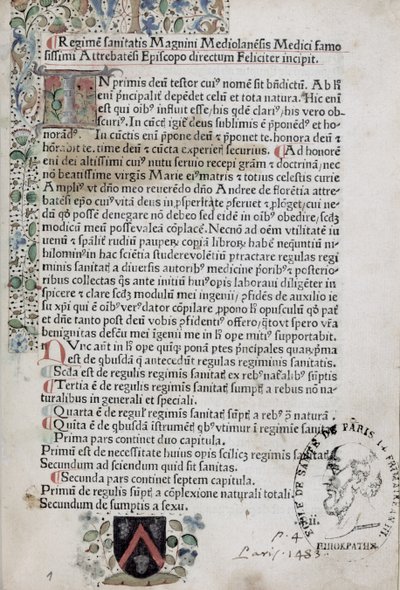 Regimē sanitatis Magnini Mediolanēsis Medici famo
sissimi Attrebatēsi Episcopo directum Feliciter incipit.
IN primis deū testor cui⁹ nomē sit bn̄dictū. Ab h̄
eni p̄ncipalit̄ depēdet celū et tota natura. Hic eni
est qui oīb⁹ influit esse/his qdē clari⁹/his vero ob-
scuri⁹. In cūcti igit̄ deus sublimis ē
In cūctis eni p̄pone deū ⁊ p̄ponet te. honora deū ⁊
time deū ⁊ cūcta experieri securius. Ad honorē
eni dei altissimi cui⁹ nutu servio recepi grām ⁊ doctrinā/nec
nō beatissime virgīs Marie ei⁹ matris ⁊ totius celestis curie
Ampli⁹ vt dn̄o meo reuerēdo dn̄o Andree de florētia attre-
batēsi ep̄o cui⁹ vitā deus in p̄sperítate p̄seruet ⁊ plōget/cui ne-
dū qd̄ posse denegare nō debeo sed eidē in oīb⁹ obedire/
modicū meū posse valeā cōplacē. Necnō ad oēm vtilitatē iu
uenū ⁊ rudiū paupeꝝ copiā libroꝝ habē nequntiū ni-
hilomin⁹ in hac sciētia studere volētiū ptractare regulas regi
minis sanitat̄ a diuersis autorib⁹ medicine ⁊ posterio-
ribus collectas q̄s ante initiū hui⁹ opis laboraui diligēter in-
spicere ⁊ clare modulū mei ingenij/ de auxilio ie
su xp̄i qui ē oīb⁹ ver⁹ dator cōpilare/ hoc opusculū qd̄ pat̄
et dūe tanto post deū vobis offero/ spero vr̄a
benignitas defectū mei igenij me in h̄ ope miti⁹ supportabit.
NVnc aūt in h̄ ope quīqꝫ ponā ptes p̄ncipales quaꝝ pma
est de qbusdā q̄ antecedūt regulas regiminis sanitatis.
Scda est de regulis regimis sanitat̄ ex reb⁹ nat̄alib⁹ sūptis
Tertia ē de regulis regimīs sanitat̄ sumpt̄ a rebus nō na-
turalibus in generali et speciali.
Quarta ē de regul̄ regimīs sanitat̄ sūpt̄ a reb⁹ p̄ naturā.
Quīta ē de qbusdā īstrumēt̄ qb⁹ vtimur ī regimīe sanitat̄
Prima pars continet duo capitula.
Primū est de necessitate huius opis scilicꝫ regimīs sanitat̄
Secundum ad sciendum quid sit sanitas.
Secunda pars continet septem capitula.
Primū de regulis sūpt̄ a cōplexione naturali totali.
Secundum de sumptis a sexu.
ii.
ECOLE DE SANTÉ DE PARIS
ΙΠΠΟΚΡΑΤΗΣ
Paris. 1483
1